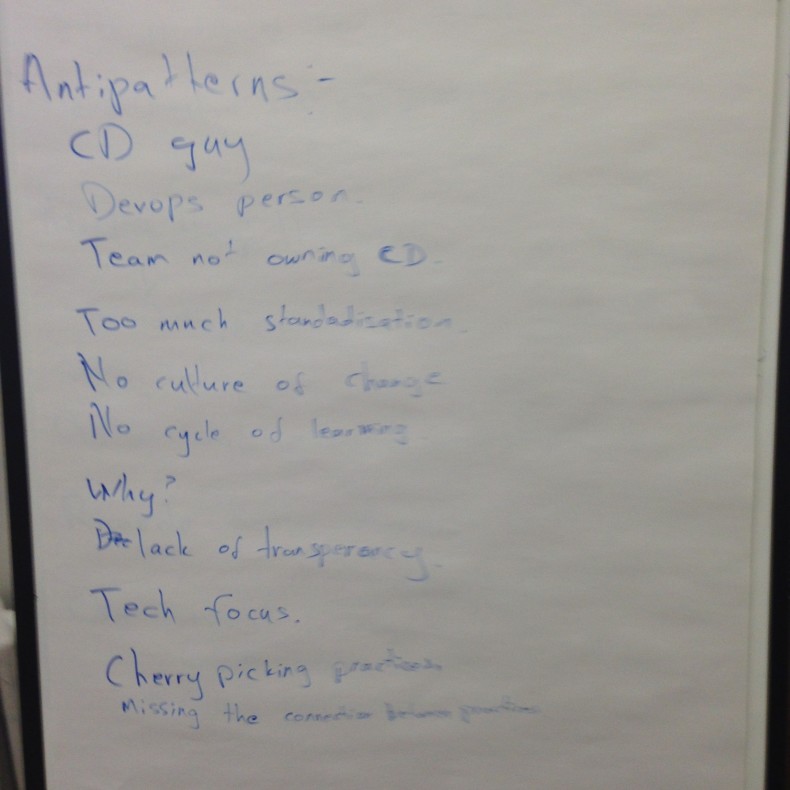 Antipatterns:-
CD guy
Devops person.
Team not owning CD.
Too much standadisation.
No culture of change
No cycle of learning
Why?
lack of transperancy.
Tech focus.
Cherry picking practices
Missing the connection between practices